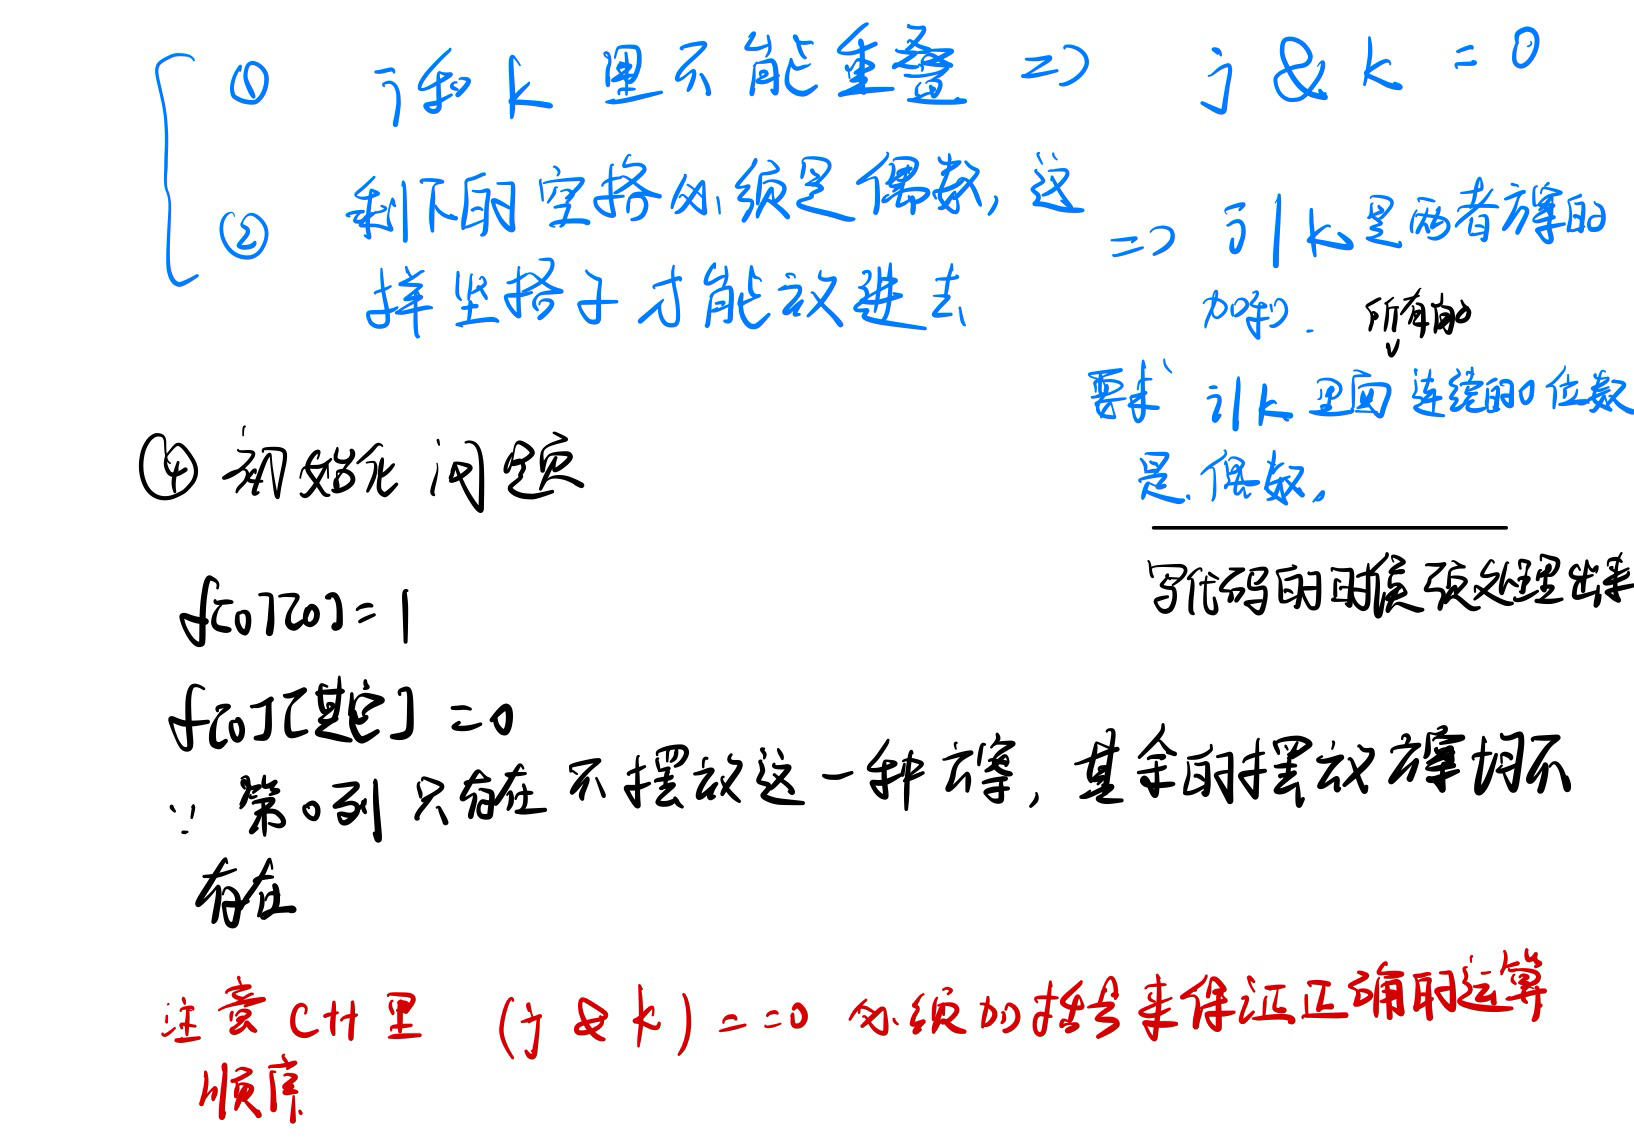 ① j和k里不能重叠 => j & k = 0
② 剩下的空格必须是偶数，这
样竖格子才能放进去
=> j|k是两者方案的
加和. 所有的
要求 j|k里面连续的0位数
是偶数。
写代码的时候预处理出来
④ 初始化问题
f[0][0]=1
f[0][其它]=0
∵ 第0列只存在不摆放这一种方案，其余的摆放方案均不
存在
注意C++里 (j & k)==0 必须加括号来保证正确的运算
顺序